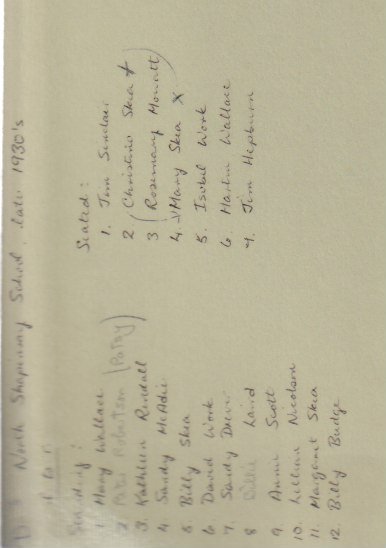 North Shapinsay School, late 1930's
Standing:
1. Mary Wallace
2 Robertson (Patsy)
3. Kathleen Rendall
4. Sandy McAdie
5 Billy Skea
6. David Work
7. Sandy Drever
8 Laird
9. Annie Scott
10. Lillian Nicolson
11. Margaret Skea
12. Billy Budge
Seated:
1. Jim Sinclair
2 (Christina Skea +
3 (Rosemary Mowatt)
4. Mary Skea x
5. Isobel Work
6. Martin Wallace
7. Jim Hepburn